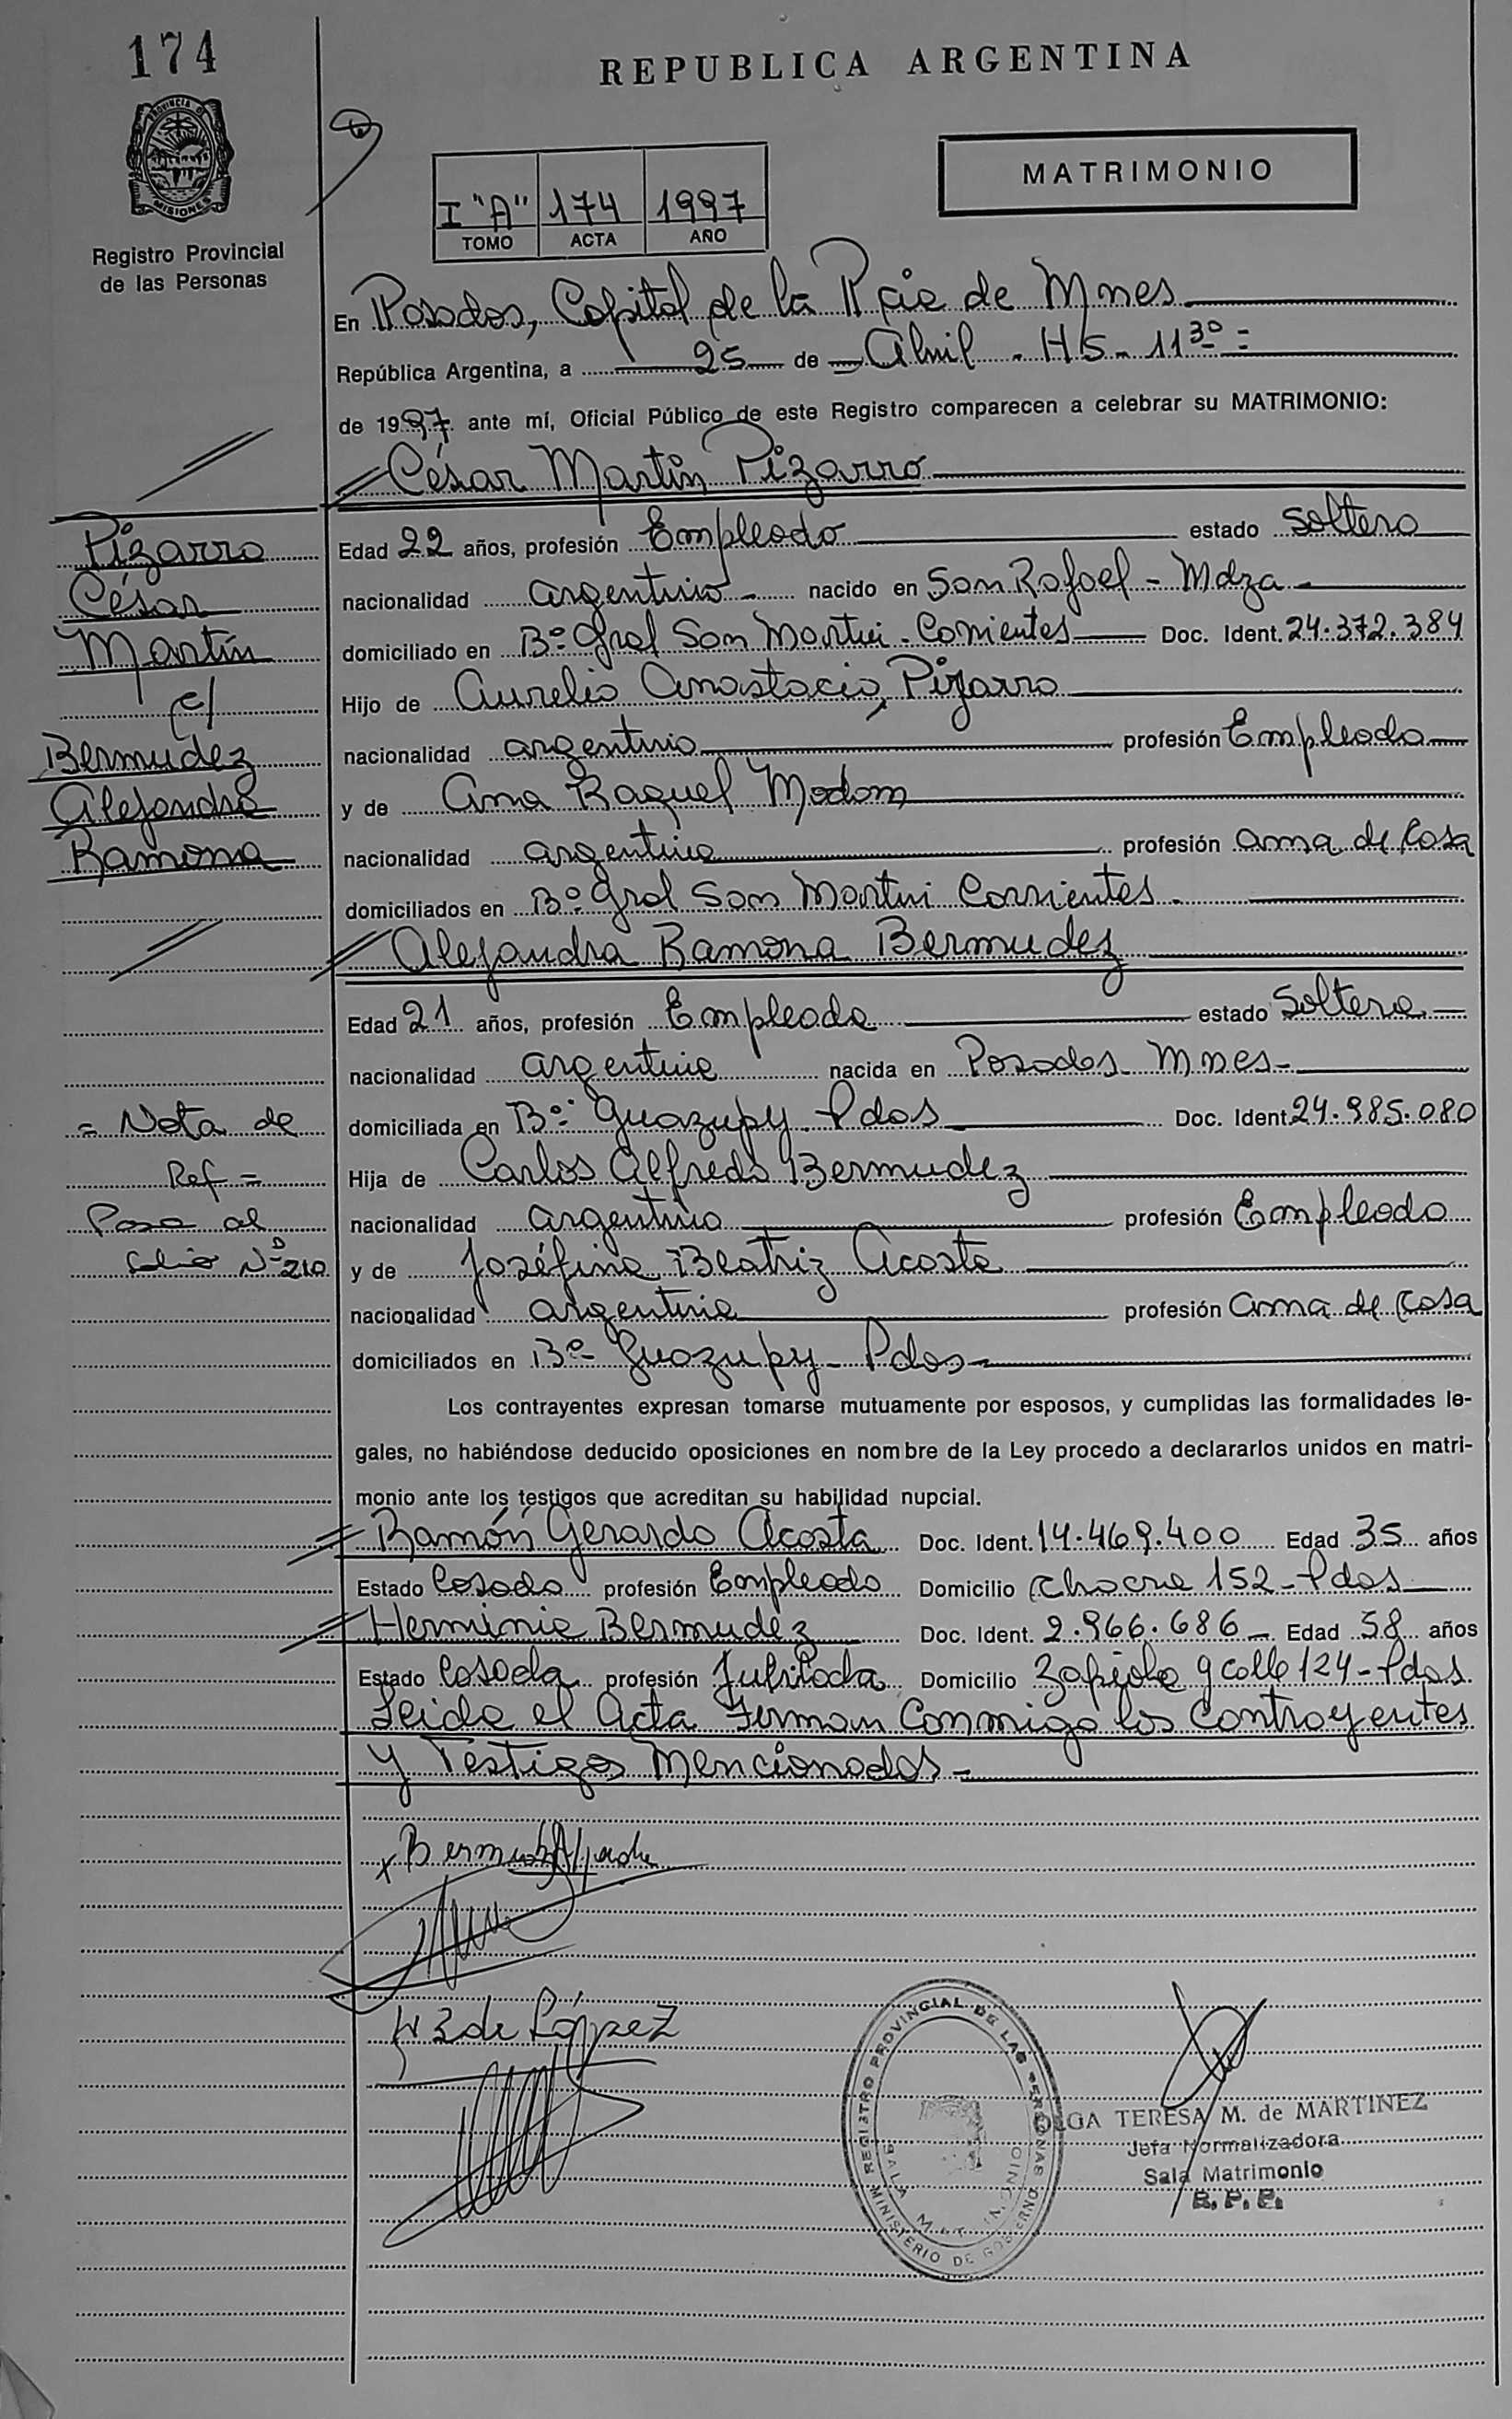 174
REPUBLICA ARGENTINA
PROVINCIA DE
MISIONES
Registro Provincial
de las Personas
MATRIMONIO
I "A" 174 1997
TOMO ACTA AÑO
En Posadas, Capital de la Pcia de Mnes
República Argentina, a 25 de Abril - HS - 11 30 =
de 1997 ante mí, Oficial Público de este Registro comparecen a celebrar su MATRIMONIO:
César Martín Pizarro
Edad 22 años, profesión Empleado estado Soltero
nacionalidad argentino - nacido en San Rafael - Mdza -
domiciliado en Bº Gral San Martin - Corrientes Doc. Ident. 24.372.384
Hijo de Aurelio Anastacio, Pizarro
nacionalidad argentino profesión Empleado
y de Ana Raquel Modom
nacionalidad argentina profesión ama de Casa
domiciliados en Bº Gral San Martin Corrientes -
Alejandra Ramona Bermudez
Edad 21 años, profesión Empleada estado Soltera
nacionalidad argentina nacida en Posadas - Mnes -
domiciliada en Bº Guazupy - Pdas Doc. Ident. 24.985.080
Hija de Carlos Alfredo Bermudez
nacionalidad argentino profesión Empleado
y de Joséfina Beatriz Acosta
nacionalidad argentina profesión ama de Casa
domiciliados en Bº Guazupy - Pdas -
Los contrayentes expresan tomarse mutuamente por esposos, y cumplidas las formalidades le-
gales, no habiéndose deducido oposiciones en nombre de la Ley procedo a declararlos unidos en matri-
monio ante los testigos que acreditan su habilidad nupcial.
Ramón Gerardo Acosta Doc. Ident. 14.469.400 Edad 35 años
Estado Casado profesión Empleado Domicilio Chacra 152 - Pdas
Herminia Bermudez Doc. Ident. 2.966.686 - Edad 58 años
Estado Casada profesión Jubilada Domicilio Zapiola y calle 124 - Pdas
Leida el Acta Firman Conmigo los Contrayentes
y Testigos Mencionados -
Pizarro
César
Martín
c/
Bermudez
Alejandra
Ramona
= Nota de
Ref =
Pasa al
Nº 210
x
de López
REGISTRO PROVINCIAL DE LAS PERSONAS
MINISTERIO DE GOBIERNO
SALA
OLGA TERESA M. de MARTINEZ
Jefa Normalizadora
Sala Matrimonio
R. P. P.